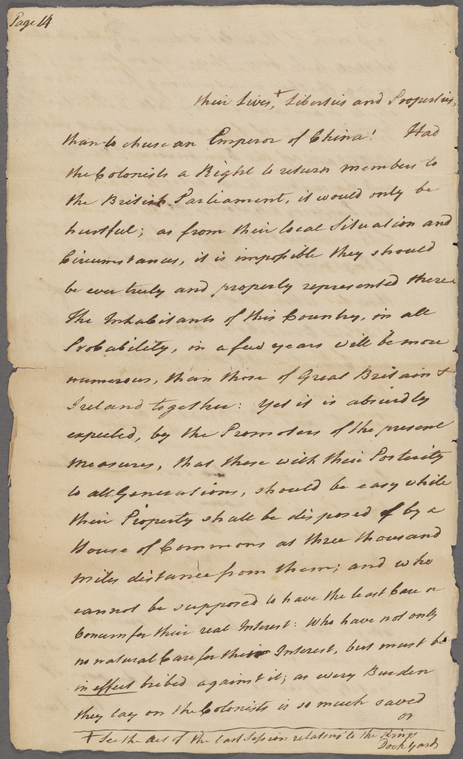 Page 14
their Lives,† Liberties and Properties,
than to chuse an Emperor of China! Had
the Colonists a Right to return members to
the British Parliament, it would only be
hurtful; as from their local Situation and
Circumstances, it is impossible they should
be ever truly and properly represented there.
The Inhabitants of this Country, in all
Probability, in a few years will be more
numerous, than those of Great Britain &
Ireland together: Yet it is absurdly
expected, by the Promoters of the present
measures, that these with their Posterity
to all Generations, should be easy while
their Property shall be disposed of by a
House of Commons at three thousand
miles distance from them; and who
cannot be supposed to have the least Care or
Concern for their real Interest: Who have not only
no natural Care for their Interest, but must be
in effect bribed against it; as every Burden
they lay on the Colonists is so much saved
or
† See the Act of the last Session relating to the Kings
Dock Yards